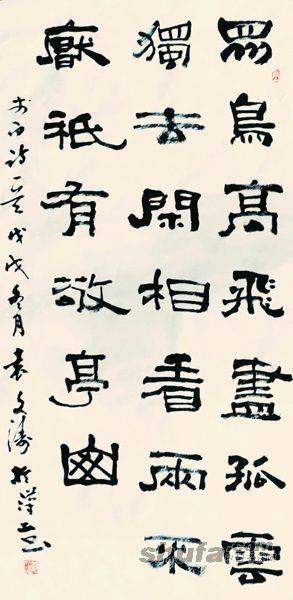 眾鳥高飛盡孤雲
獨去閑相看兩不
厭祇有敬亭山
李白诗一首戊戌冬月袁文濤於漢上書